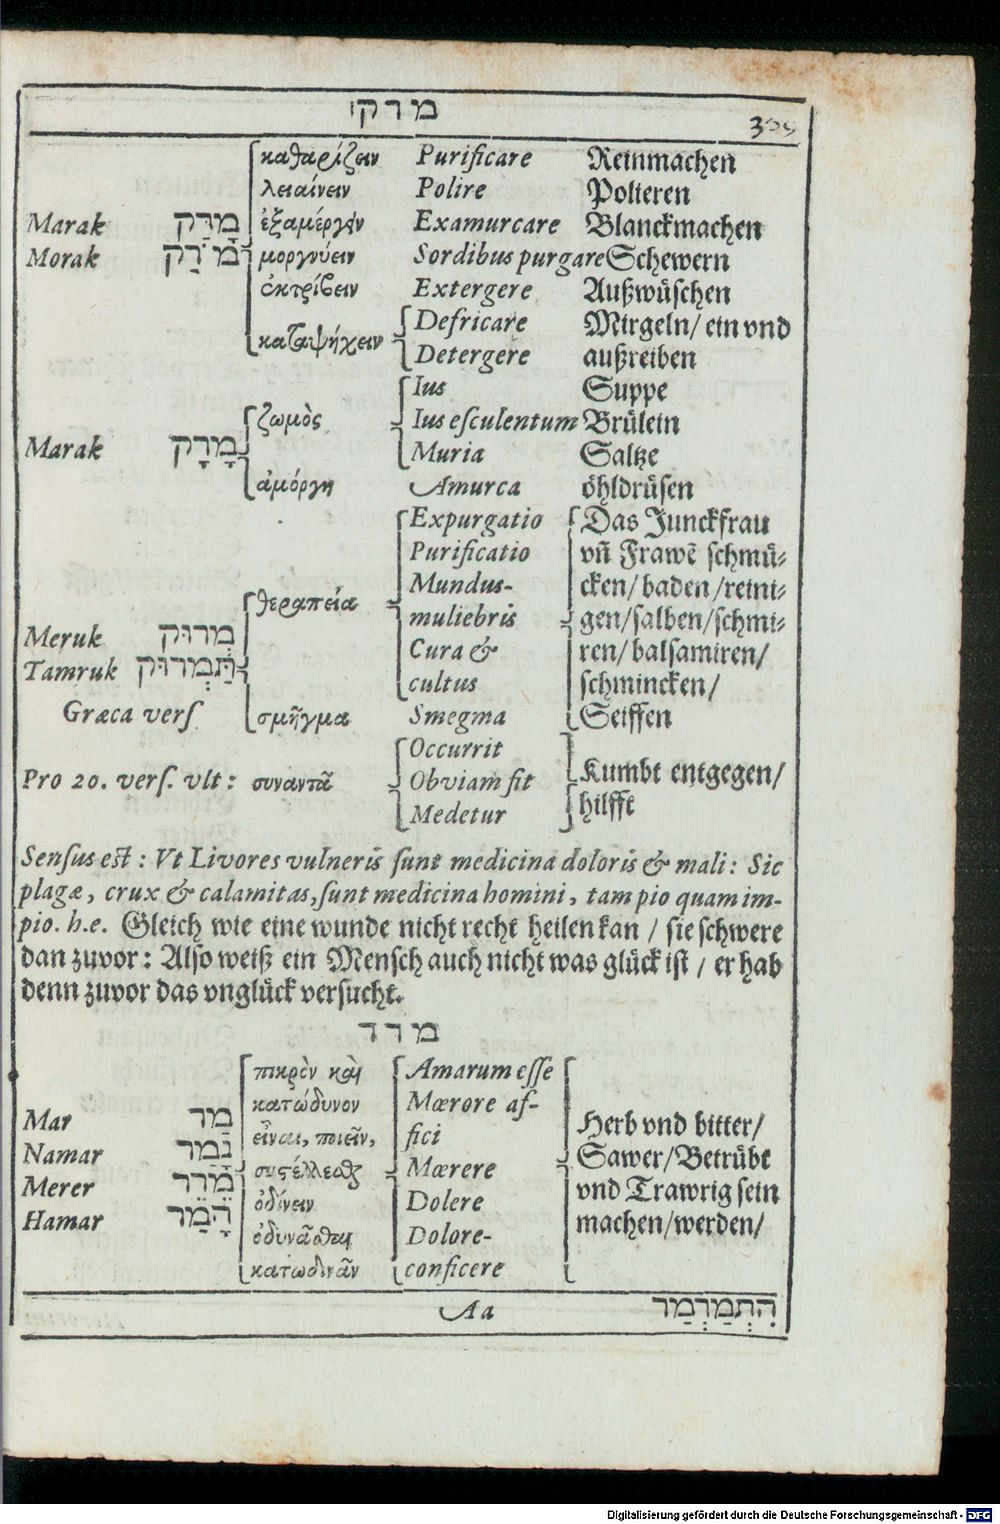 מרקו 369
καθαρίζειν Purificare Reinmachen
λειαίνειν Polire Polieren
Marak מָרַק ἐξαμέργειν Examurcare Blanckmachen
Morak מֹרַק μοργνύειν Sordibus purgare Schewern
ἐκτρίβειν Extergere Außwüschen
Defricare Mirgeln/ ein vnd
καταψήχειν
Detergere außreiben
Ius Suppe
ζωμὸς Ius esculentum Brülein
Marak מָרָק Muria Saltze
ἀμόργη Amurca öhldrüsen
Expurgatio Das Junckfrau
Purificatio vñ Frawē schmü-
Mundus- cken/ baden/reini-
θεραπεία
muliebris gen/salben/schmi-
Meruk מְרוּק Cura & ren/ balsamiren/
Tamruk תַּמְרוּק cultus schmincken/
Græca vers σμῆγμα Smegma Seiffen
Occurrit
Pro 20. vers. vlt: συναντᾶ Obviam fit Kumbt entgegen/
Medetur hilfft
Sensus est: Vt Livores vulneris sunt medicina doloris & mali: Sic
plagæ, crux & calamitas, sunt medicina homini, tam pio quam im-
pio. h.e. Gleich wie eine wunde nicht recht heilen kan / sie schwere
dan zuvor: Also weiß ein Mensch auch nicht was glück ist / er hab
denn zuvor das vnglück versucht.
מרד
πικρὸν καὶ Amarum esse
κατώδυνον Mærore af-
Mar מַר εἶναι, ποιεῖν, fici Herb vnd bitter/
Namar נָמַר Mærere Sawer/Betrübt
Merer מֵרֵר ὀδίνειν Dolere vnd Trawrig sein
Hamar הָמַר ὀδυνᾶσθαι Dolore- machen/werden/
κατωδινᾶν conficere
Aa הִתְמַרְמַר
Digitalisierung gefördert durch die Deutsche Forschungsgemeinschaft - DFG